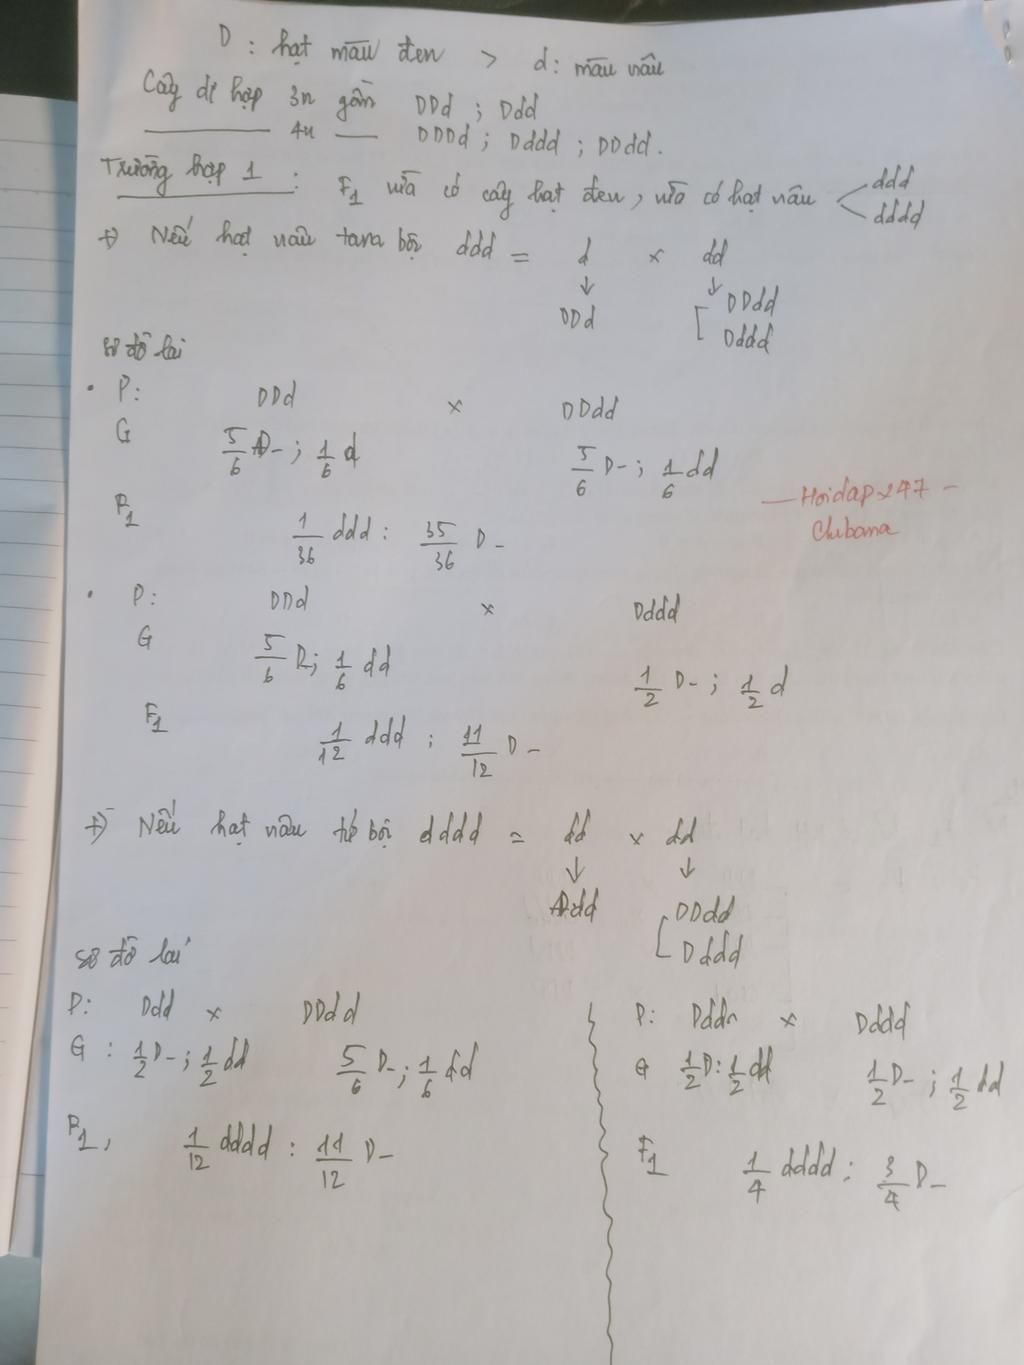 D : hạt màu đen > d : màu nâu
Cây dị hợp 3n gồm DDd ; Ddd
——— 4n —— DDDd ; Dddd ; DDdd.
Trường hợp 1 : F1 vừa có cây hạt đen, vừa có hạt nâu < ddd
dddd
+) Nếu hạt nâu tam bội ddd = d x dd
↓ ↓
DDd [ DDdd
Dddd
sơ đồ lai
• P: DDd x DDdd
G 5/6 D- ; 1/6 d 5/6 D- ; 1/6 dd
F1 1/36 ddd : 35/36 D-
— Hoidapx247 —
Chibana
• P: DDd x Dddd
G 5/6 D; 1/6 dd 1/2 D- ; 1/2 d
F1 1/12 ddd ; 11/12 D-
+) Nếu hạt nâu tứ bội dddd = dd x dd
↓ ↓
Ddd [ DDdd
Dddd
sơ đồ lai
P: Ddd x DDdd
G : 1/2 D- ; 1/2 dd 5/6 D- ; 1/6 dd
F1, 1/12 dddd : 11/12 D-
P: Ddd x Dddd
G 1/2 D : 1/2 dd 1/2 D- ; 1/2 dd
F1 1/4 dddd : 3/4 D-